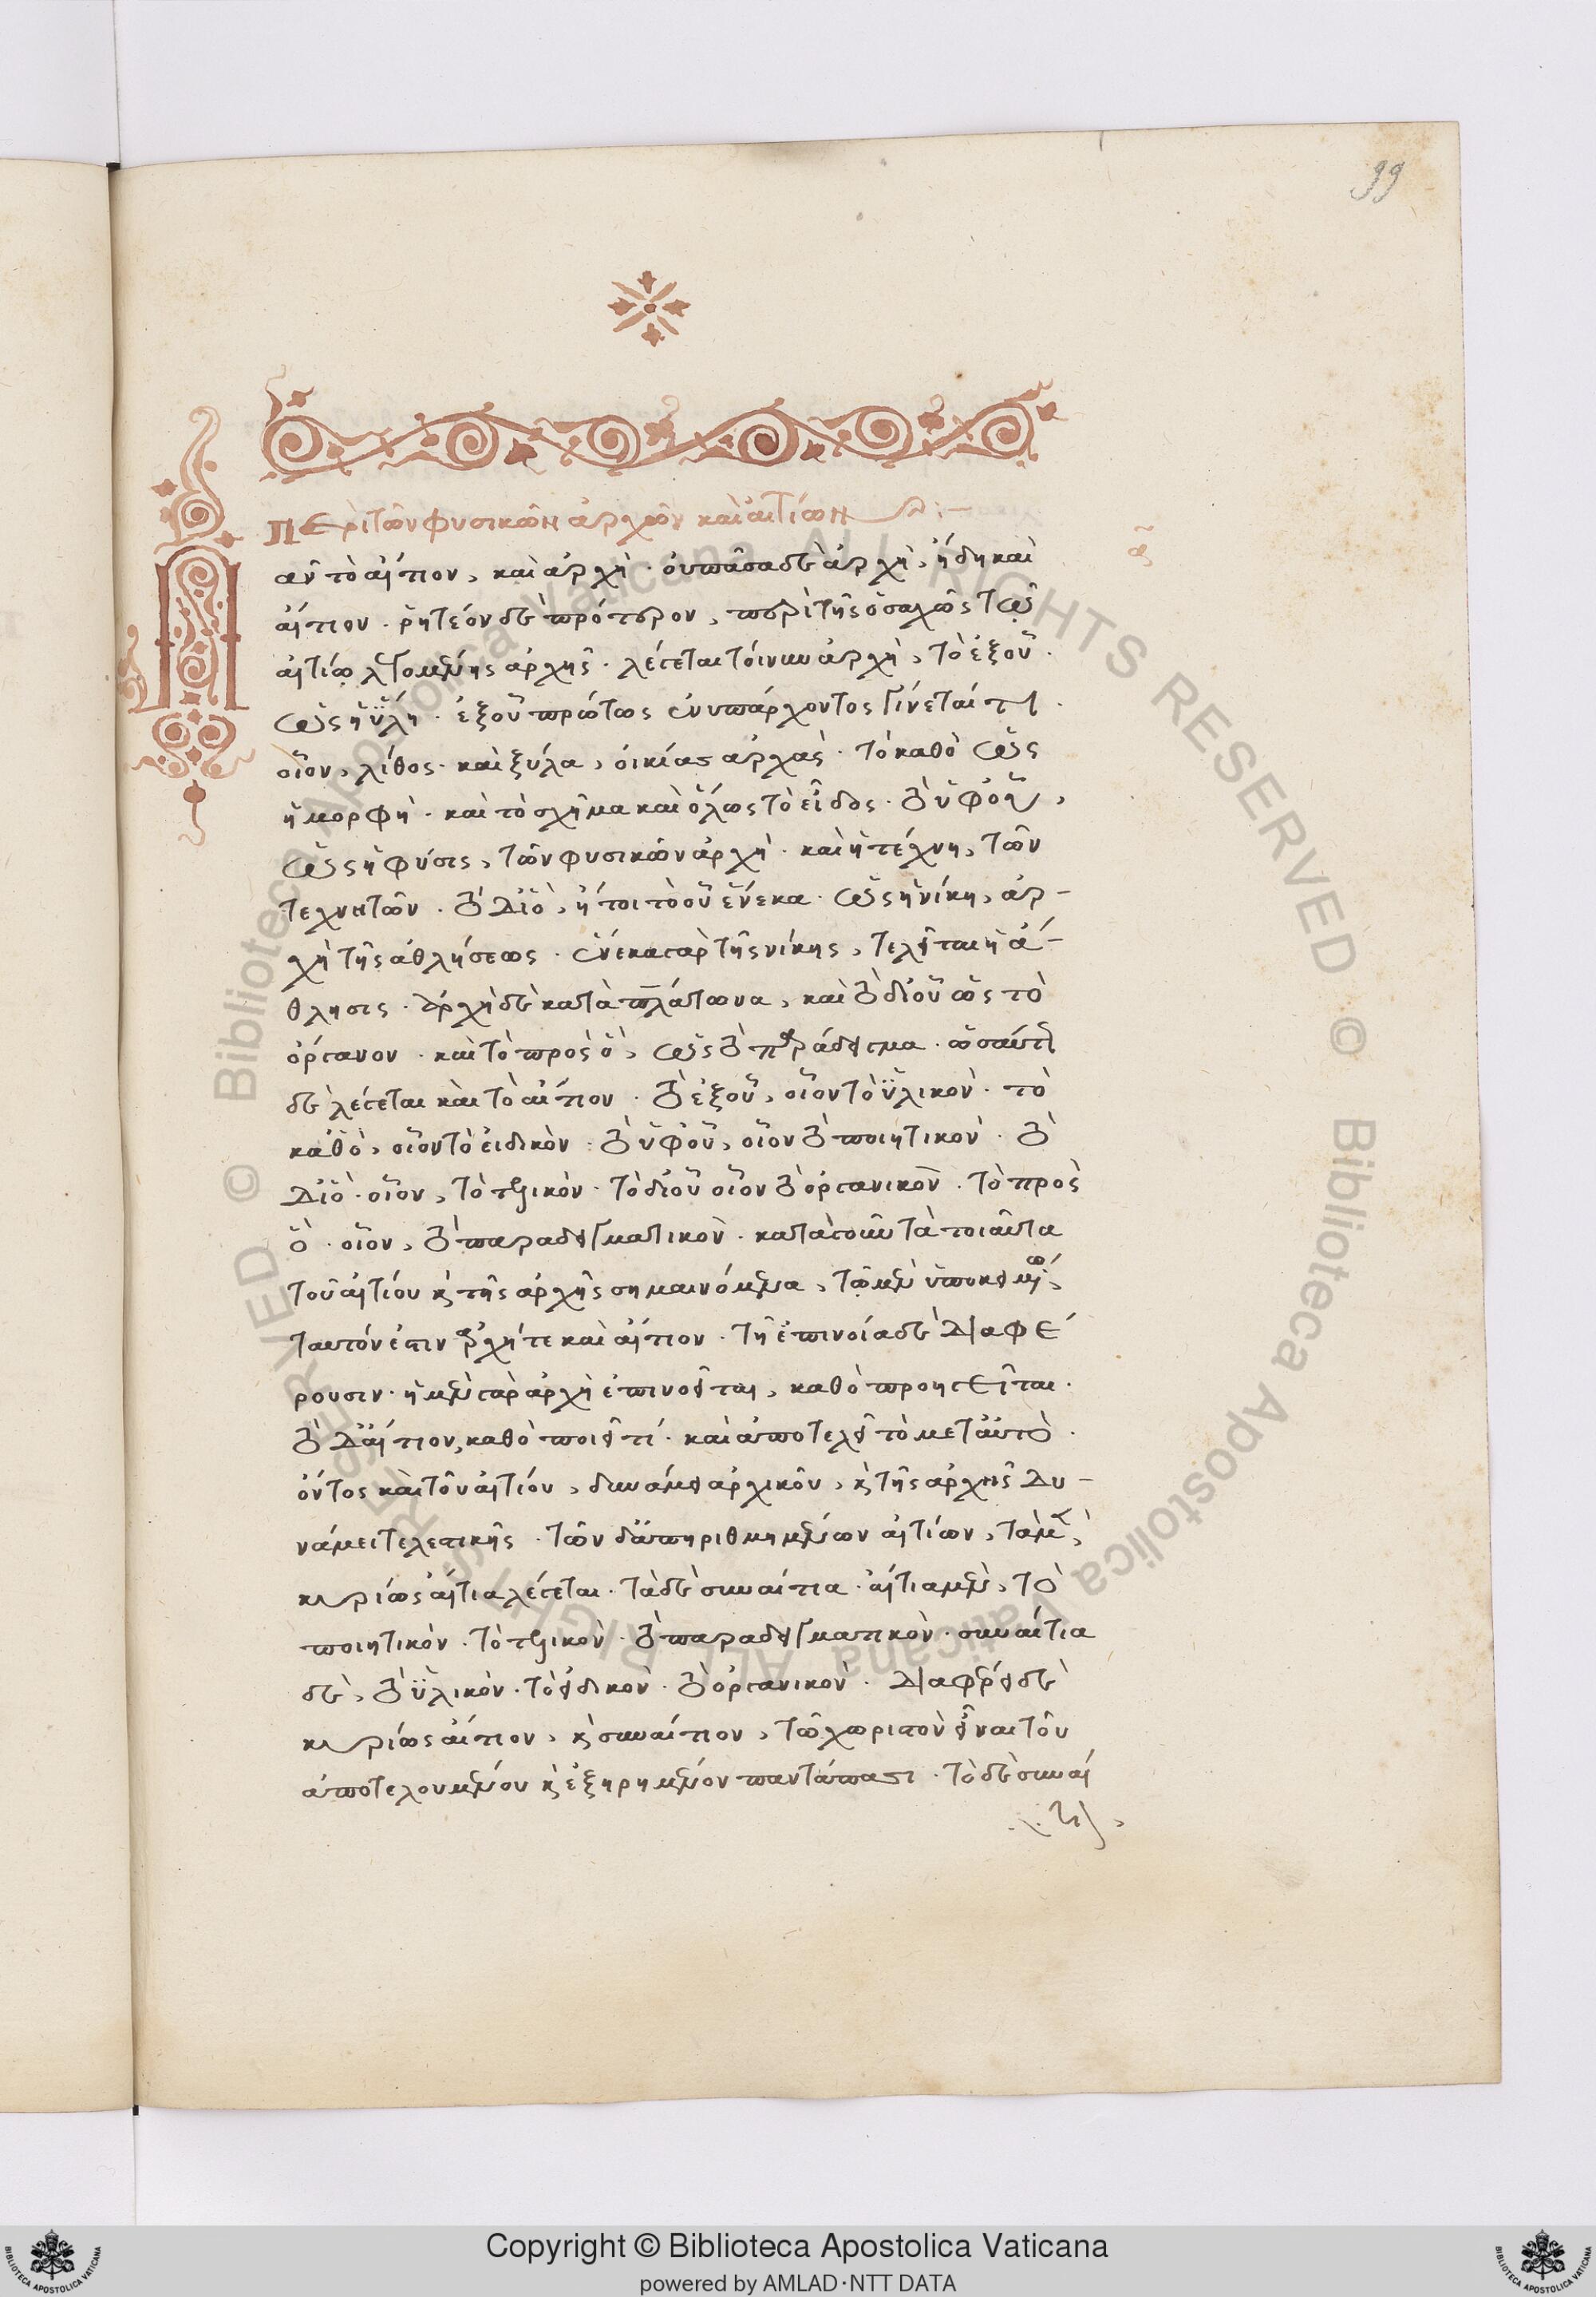 99
Περὶ τῶν φυσικῶν ἀρχῶν καὶ αἰτίων
α
Πᾶν τὸ αἴτιον, καὶ ἀρχή· οὐ πᾶσα δὲ ἀρχὴ, ἤδη καὶ
αἴτιον. ῥητέον δὲ πρότερον, περὶ τῆς ἰσαχῶς τῷ
αἰτίῳ λεγομένης ἀρχῆς. λέγεται τοίνυν ἀρχὴ, τὸ ἐξ οὗ.
ὡς ἡ ὕλη. ἐξ οὗ πρώτως ἐνυπάρχοντος γίνεταί τι.
οἷον, λίθος καὶ ξύλα, οἰκίας ἀρχαί. τὸ καθὸ ὡς
ἡ μορφή. καὶ τὸ σχῆμα καὶ ὅλως τὸ εἶδος. τὸ ὑφ' οὗ,
ὡς ἡ φύσις, τῶν φυσικῶν ἀρχή. καὶ ἡ τέχνη, τῶν
τεχνητῶν. τὸ δι' ὃ, ἤτοι τὸ οὗ ἕνεκα. ὡς ἡ νίκη, ἀρ-
χὴ τῆς ἀθλήσεως. ἕνεκα γὰρ τῆς νίκης, τελεῖται ἡ ἄ-
θλησις. ἀρχὴ δὲ κατὰ πλάτωνα, καὶ τὸ δι' οὗ ὡς τὸ
ὄργανον. καὶ τὸ πρὸς ὃ, ὡς τὸ παράδειγμα. ὡσαύτως
δὲ λέγεται καὶ τὸ αἴτιον. τὸ ἐξ οὗ, οἷον τὸ ὑλικόν. τὸ
καθὸ, οἷον τὸ εἰδικόν. τὸ ὑφ' οὗ, οἷον τὸ ποιητικόν. τὸ
δι' ὃ. οἷον, τὸ τελικόν. τὸ δι' οὗ οἷον τὸ ὀργανικόν. τὸ πρὸς
ὃ. οἷον, τὸ παραδειγματικόν. κατὰ γοῦν τὰ τοιαῦτα
τοῦ αἰτίου καὶ τῆς ἀρχῆς σημαινόμενα, τῷ μὲν ὑποκειμένῳ,
ταυτόν ἐστιν ἀρχή τε καὶ αἴτιον. τῇ ἐπινοίᾳ δὲ διαφέ
ρουσιν. ἡ μὲν γὰρ ἀρχὴ ἐπινοεῖται, καθὸ προηγεῖται.
τὸ δ' αἴτιον, καθὸ ποιεῖ τί. καὶ ἀποτελεῖ τὸ μετ' αὐτό.
ὄντος καὶ τοῦ αἰτίου, δυνάμει ἀρχικοῦ, καὶ τῆς ἀρχῆς δυ-
νάμει τελεστικῆς. τῶν δ' ἀπηριθμημένων αἰτίων, τὰ μὲν,
κυρίως αἴτια λέγεται. τὰ δὲ συναίτια. αἴτια μὲν, τὸ
ποιητικόν. τὸ τελικόν. τὸ παραδειγματικόν. συναίτια
δὲ, τὸ ὑλικόν. τὸ εἰδικόν. τὸ ὀργανικόν. διαφέρει δὲ
κυρίως αἴτιον, καὶ συναίτιον, τῷ χωριστὸν εἶναι τοῦ
ἀποτελουμένου καὶ ἐξῃρημένον παντάπασι. τὸ δὲ συναί
Copyright © Biblioteca Apostolica Vaticana
powered by AMLAD·NTT DATA